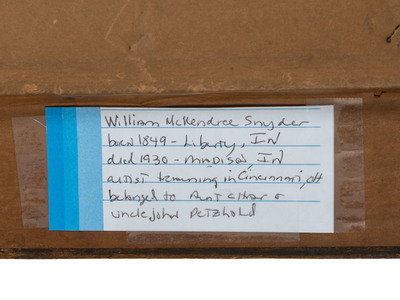 William McKendree Snyder
born 1849 - Liberty, IN
died 1930 - MADISON, IN
artist training in Cincinnati, OH
belonged to Aunt &
uncle John Petzhold